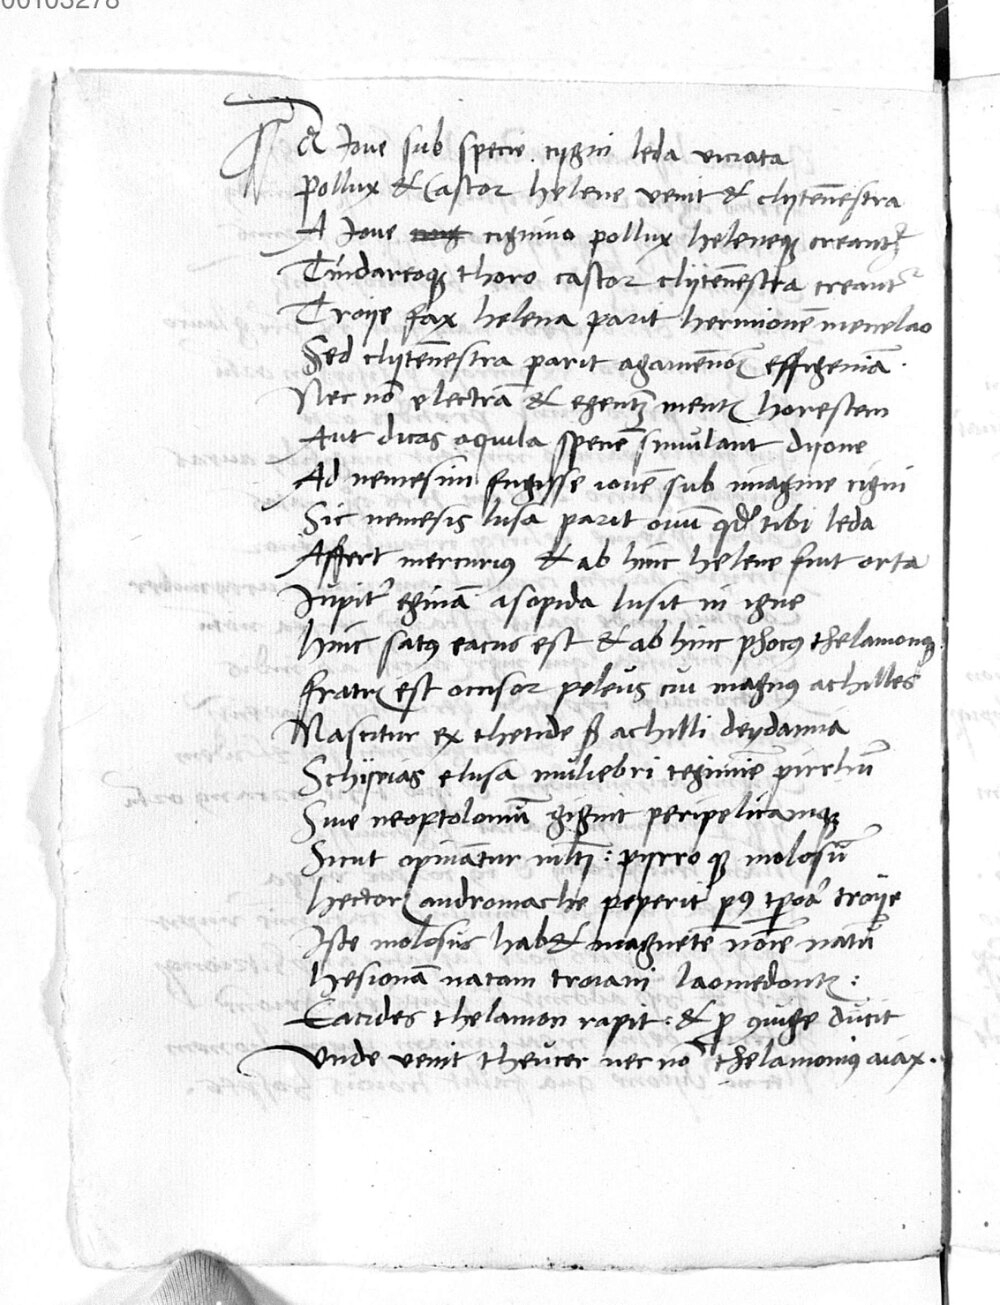 00103278
A Jove sub specie cygni leda viciata
Pollux & Castor helene venit & clytēnestra
A Jove cignino pollux heleneqꝫ creantʳ
Tindareoqꝫ thoro castor clytēnestra creantʳ
Troije fax helena parit hermionē menelao
Sed clytēnestra parit agamēnoī effigeniā .
Nec nō electrā & egentē mentī horestem
Aut dicas aquila speciē simulant dijone
Ad nemesim fugisse iovē sub imagine cigni
Sic nemesis lusa parit ovū qđ tibi leda
Affert mercuriꝰ & ab hinc helene fuit orta
Jupitʳ eginā asopida lusit in igne
hinc satꝰ eacus est & ab hinc phocꝰ thelamonqꝫ
fratrī est occisor peleus cui magnꝰ achilles
Nascitur ex thetide sꝫ achilli deydamia
Schyrias elusa muliebri tegimīe pirrhū
Sive neoptolomū gignit
Sicut opinātur mltī : pyrroqꝫ molosū
hectorī andromache peperit pꝰ tꝑoā troije
Iste molosus hab& magnetē noīe natū
hesionā natam troiani laomedontꝭ :
Eacides thelamon rapit : & ꝑ ꝯiuge ducit
Unde venit theucer nec nō thelamoniꝰ aiax .